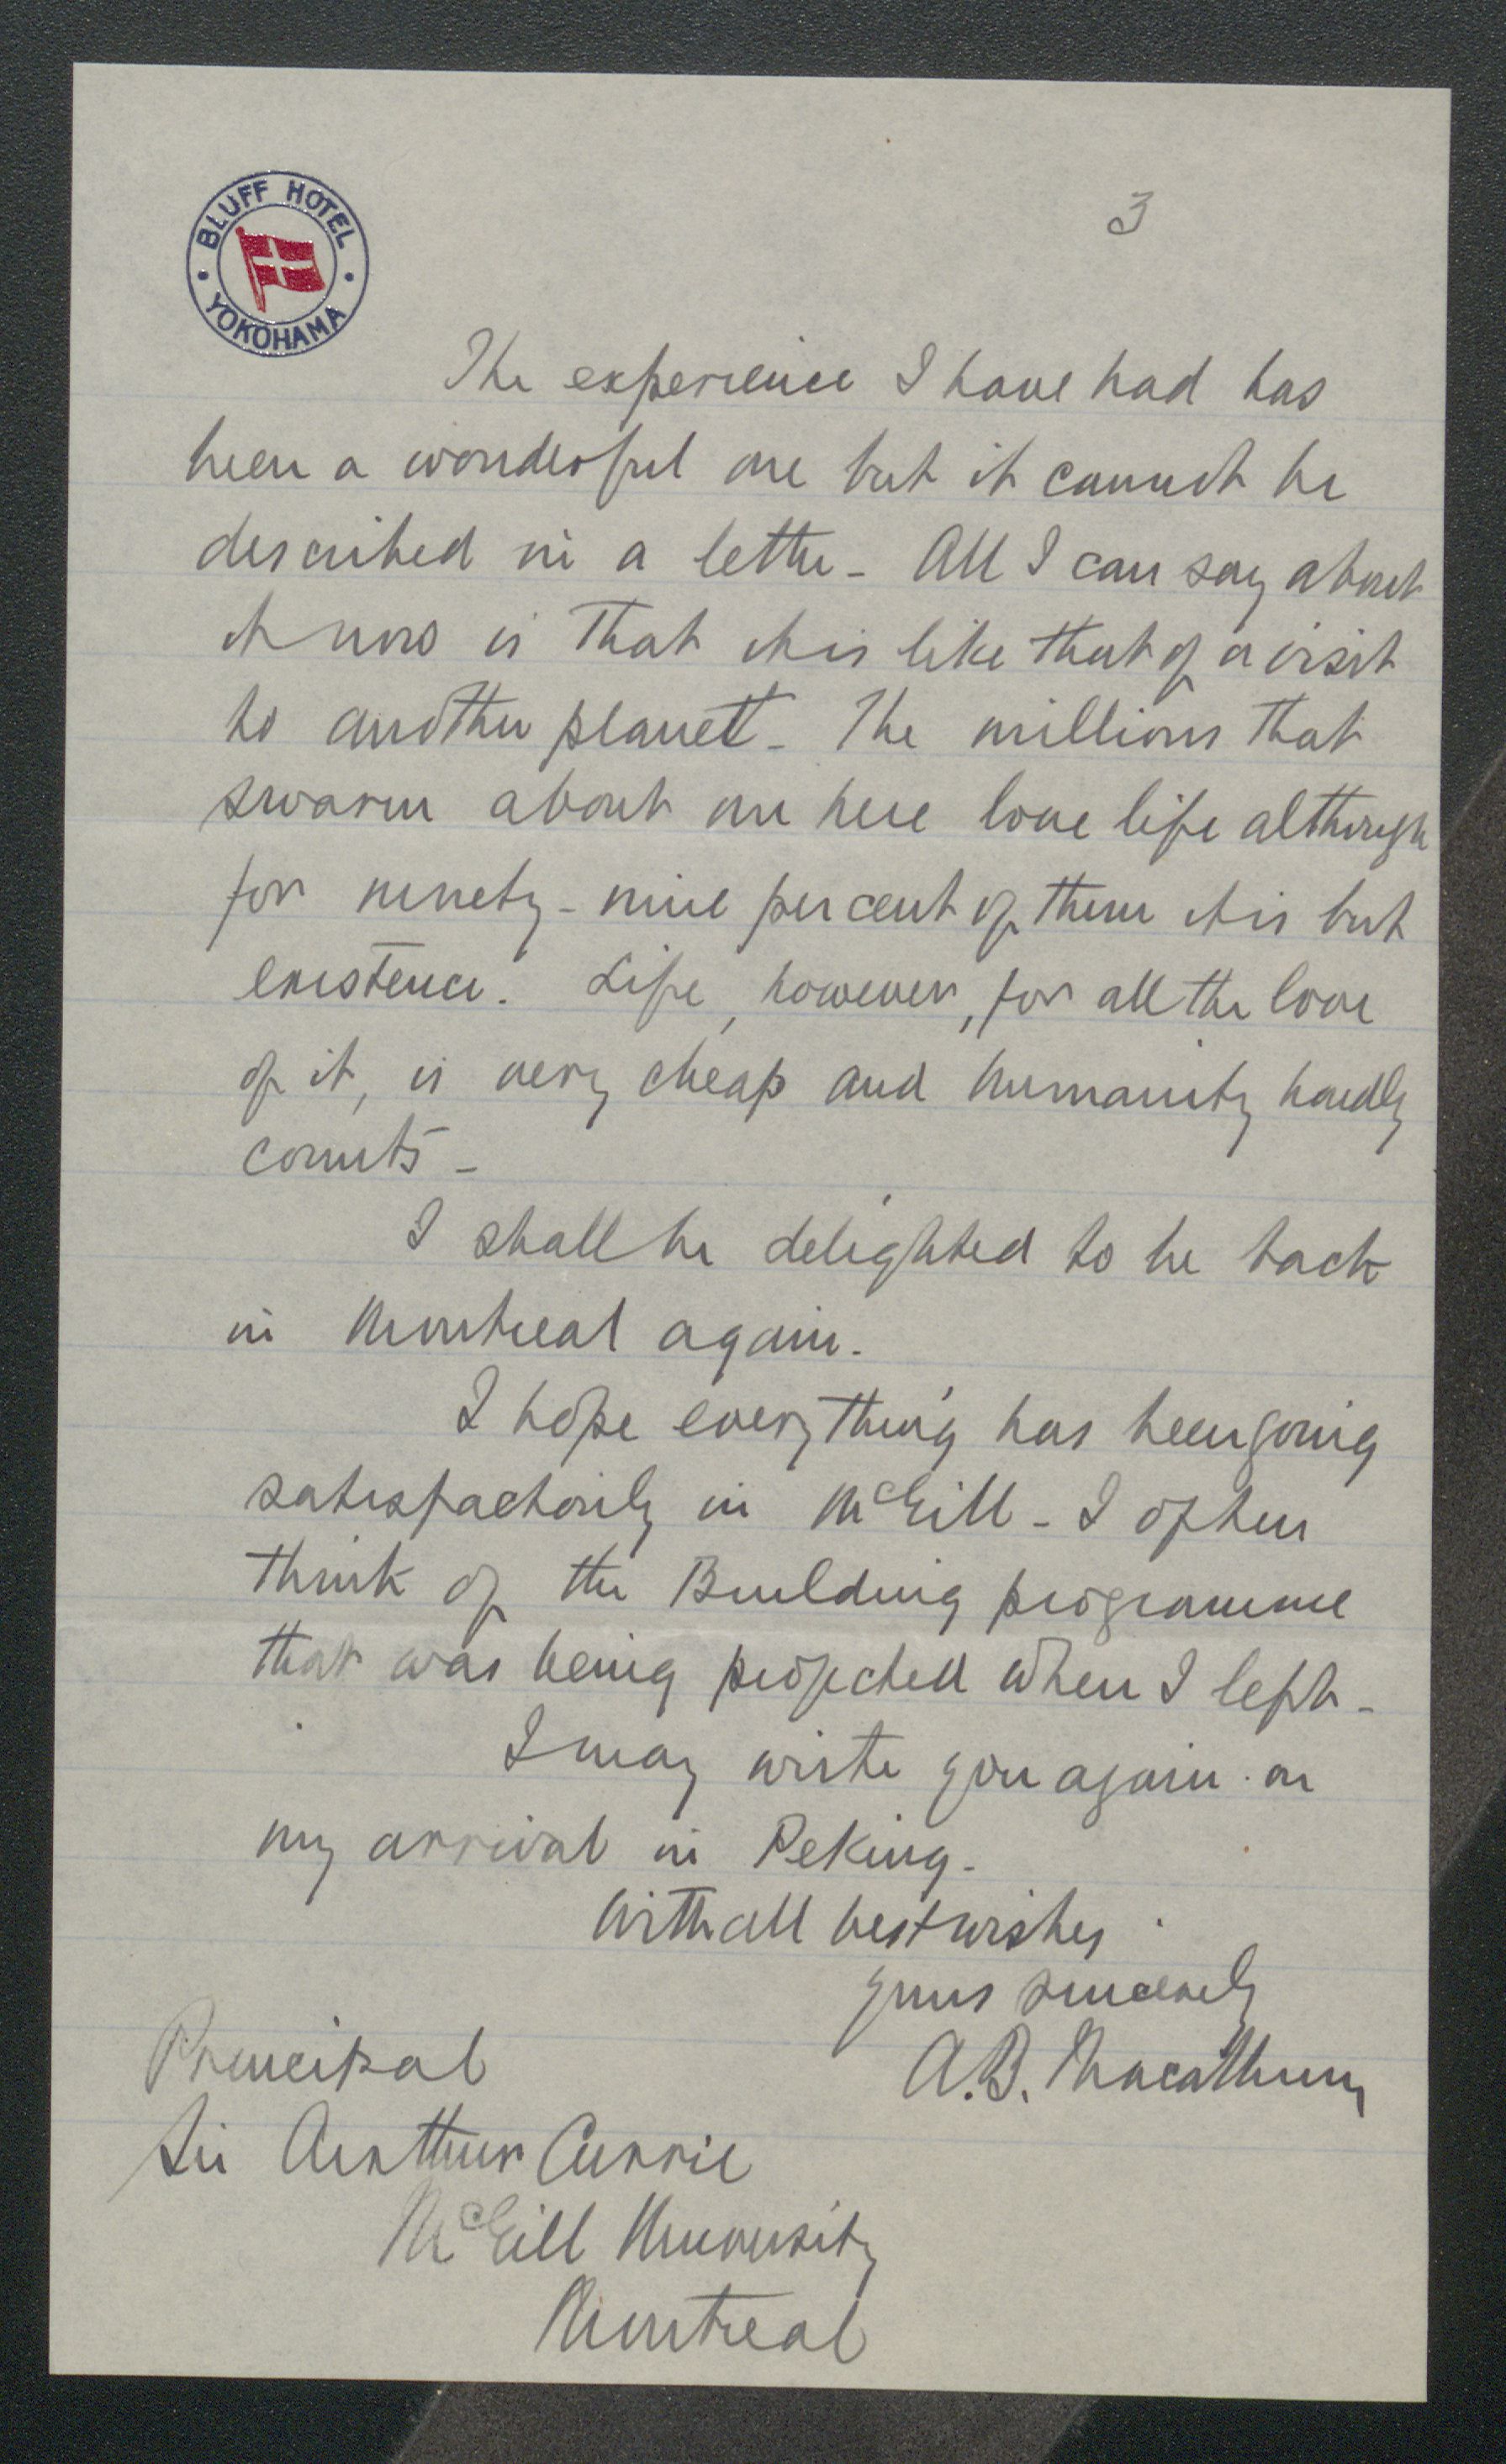 BLUFF HOTEL
YOKOHAMA
3
The experience I have had has
been a wonderful one but it cannot be
described in a letter - All I can say about
it now is that it is like that of a visit
to another planet - The millions that
swarm about one here love life although
for ninety-nine per cent of them it is but
existence. Life, however, for all the love
of it, is very cheap and humanity hardly
counts -
I shall be delighted to be back
in Montreal again.
I hope everything has been going
satisfactorily in McGill - I often
think of the Building programme
that was being projected when I left -
I may write you again on
my arrival in Peking -
With all best wishes
yours sincerely
A.B. Macallum
Principal
Sir Arthur Currie
McGill University
Montreal